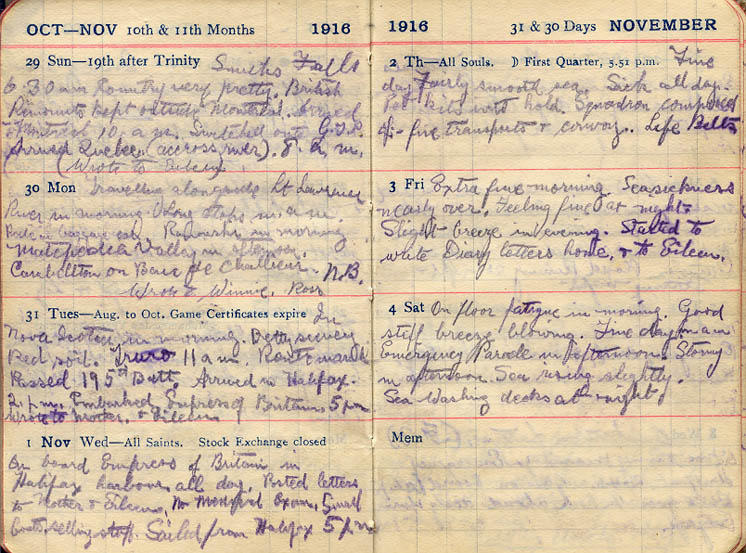 OCT—NOV 10th & 11th Months 1916
29 Sun—19th after Trinity Smiths Falls
6.30 am Country very pretty. British
kept outside Montreal. Arrived
Montreal 10. a.m. Switched onto G.T.R.
Arrived Quebec (accross river). 8. a.m.
(Wrote to Eileen)
30 Mon Travelling alongside St Lawrence
River in morning Long stops in a.m.
in morning
Matepedea Valley in afternoon.
Cambellton on Baie de Challieur. N.B.
Wrote Winnie. Ross
31 Tues—Aug. to Oct. Game Certificates expire In
Nova Scotia in morning. Pretty scenery
Red soil. Truro 11 am. Route march
Passed 195th Batt. Arrived in Halifax.
2. p.m. Embarked Empress of Britain 5 pm
Wrote to Mother. & Eileen
1 Nov Wed—All Saints. Stock Exchange closed
On board Empress of Britain in
Halifax harbour all day. Posted letters
to Mother & Eileen. No Medical Exam. Small
boats selling stop. Sailed from Halifax 5 pm
1916 31 & 30 Days NOVEMBER
2 Th—All Souls. ☽ First Quarter, 5.51 p.m. Fine
day Fairly smooth sea. Sick all day.
Put kits into hold. Squadron composed
of five transports & convoy. Life Belts
3 Fri Extra fine morning. Seasickness
nearly over. Feeling fine at night.
Slight breeze in evening. Started to
write Diary letters home, & to Eileen.
4 Sat On floor fatigue in morning. Good
stiff breeze blowing. Fine day in am
Emergency Parade in Afternoon. Stormy
in afternoon Sea rising slightly.
Sea Washing decks at night
Mem